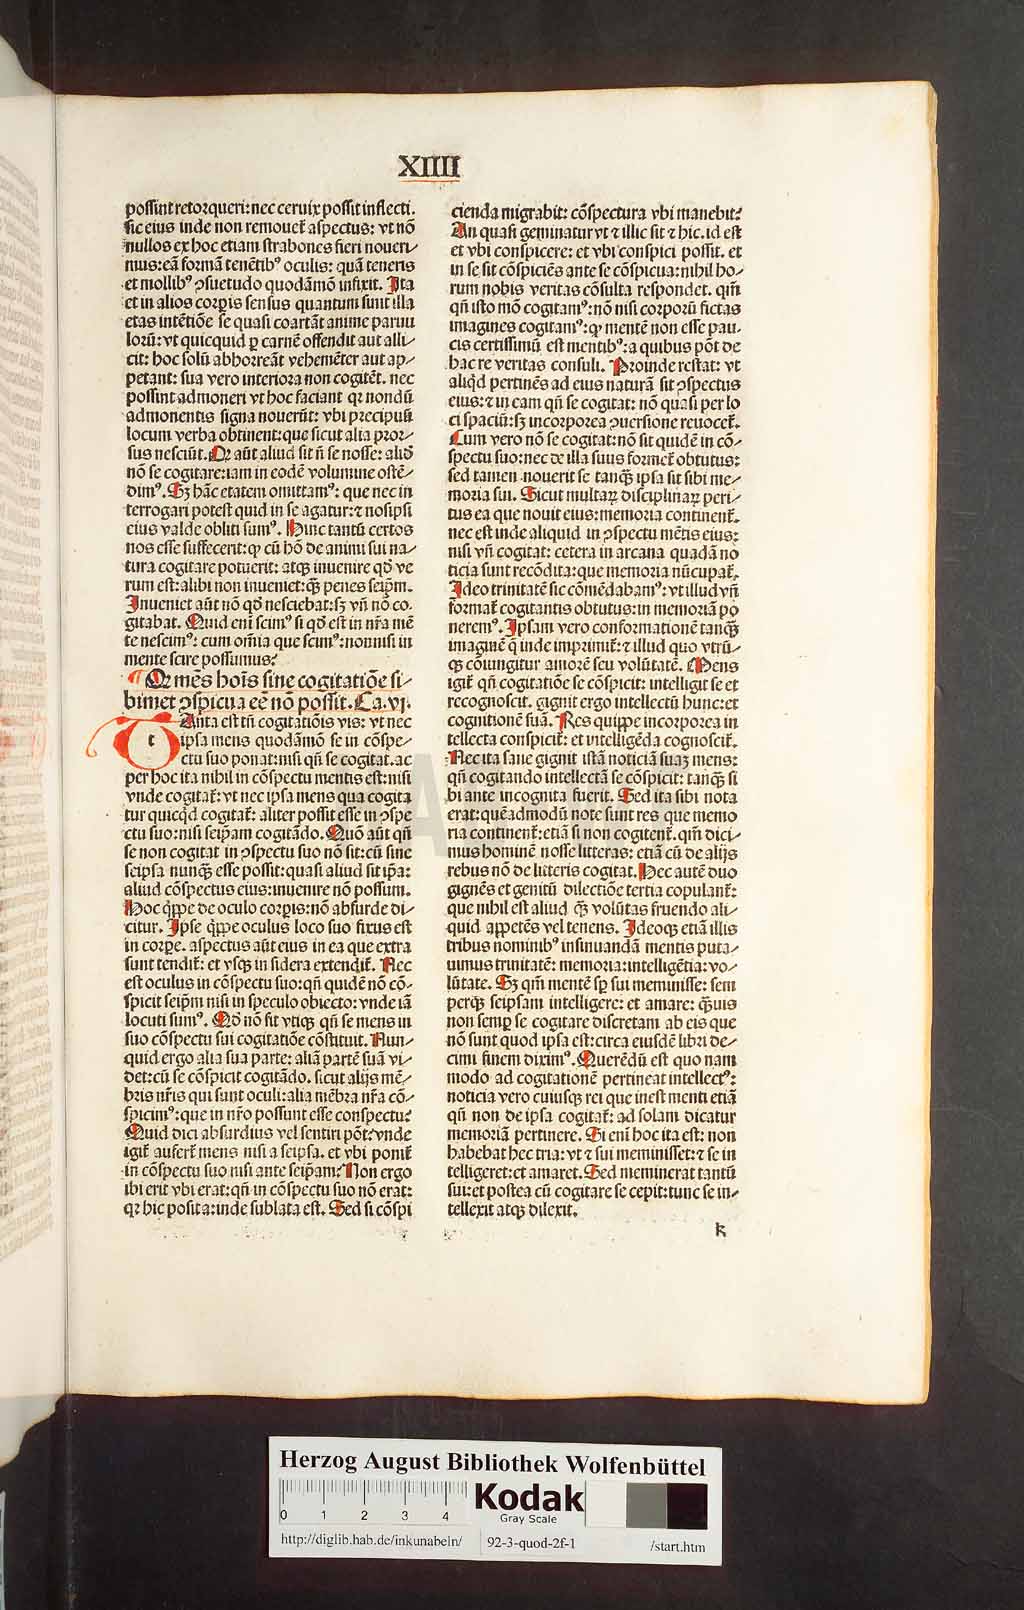 XIIII
possint retorqueri: nec ceruix possit inflecti.
sic eius inde non remouet̃ aspectus: vt nõ
nullos ex hoc etiam strabones fieri noueri/
mus: eã formã tenẽtibꝰ oculis: quã teneris
et mollibꝰ ꝯsuetudo quodãmõ infixit. Ita
et in alios corpis sensus quantum sunt illa
etas intẽtiõe se quasi coartãt anime paruu
lorũ: vt quicquid ꝑ carnẽ offendit aut alli/
cit: hoc solũ abhorreãt vehemẽter aut ap/
petant: sua vero interiora non cogitẽt. nec
possint admoneri vt hoc faciant qꝛ nondũ
admonentis signa nouerũt: vbi precipuũ
locum verba obtinent: que sicut alia pror/
sus nesciũt. Qꝛ aũt aliud sit ñ se nosse: aliđ
nõ se cogitare: iam in eodẽ volumine ostẽ/
dimꝰ. Sꝫ hãc etatem omittamꝰ: que nec in
terrogari potest quid in se agatur: ⁊ nosipsi
eius valde obliti sumꝰ. Hinc tantũ certos
nos esse suffecerit: ꝙ cũ hõ de animi sui na/
tura cogitare potuerit: atqꝫ inuenire qđ ve
rum est: alibi non inueniet: qꝫ penes seipm̃.
Inueniet aũt nõ qđ nesciebat: sꝫ vñ nõ co/
gitabat. Quid enĩ scimꝰ si qđ est in nr̃a mẽ
te nescimꝰ: cum om̃ia que scimꝰ: nonnisi in
mente scire possumus?
¶ Qꝛ mẽs hoĩs sine cogitatiõe si/
bimet ꝯspicua eẽ nõ possit. Ca. vj.
t Anta est tñ cogitatiõis vis: vt nec
ipsa mens quodãmõ se in cõspe/
ctu suo ponat: nisi qñ se cogitat. ac
per hoc ita nihil in cõspectu mentis est: nisi
vnde cogitat̃: vt nec ipsa mens qua cogita
tur quicqd cogitat̃: aliter possit esse in ꝯspe
ctu suo: nisi seipam cogitãdo. Quõ aũt qñ
se non cogitat in ꝯspectu suo nõ sit: cũ sine
seipsa nunqꝫ esse possit: quasi aliud sit ip̃a:
aliud cõspectus eius: inuenire nõ possum.
Hoc qppe de oculo corpis: nõ absurde di/
citur. Ipse qppe oculus loco suo fixus est
in corpe. aspectus aũt eius in ea que extra
sunt tendit̃: et vsqꝫ in sidera extendit̃. Nec
est oculus in cõspectu suo: qñ quidẽ nõ cõ/
spicit seipm̃ nisi in speculo obiecto: vnde iã
locuti sumꝰ. Qđ nõ fit vtiqꝫ qñ se mens in
suo cõspectu sui cogitatiõe cõstituit. Nun/
quid ergo alia sua parte: aliã partẽ suã vi/
det: cũ se cõspicit cogitãdo. sicut alijs mẽ/
bris nr̃is qui sunt oculi: alia mẽbra nr̃a cõ/
spicimꝰ: que in nr̃o possunt esse conspectu?
Quid dici absurdius vel sentiri põt: vnde
igit̃ aufert̃ mens nisi a seipsa. et vbi ponit̃
in cõspectu suo nisi ante seipam? Non ergo
ibi erit vbi erat: qñ in cõspectu suo nõ erat:
qꝛ hic posita: inde sublata est. Sed si cõspi
cienda migrabit: cõspectura vbi manebit?
An quasi geminatur vt ⁊ illic sit ⁊ hic. id est
et vbi conspicere: et vbi conspici possit. et
in se sit cõspiciẽs ante se cõspicua: nihil ho/
rum nobis veritas cõsulta respondet. qm̃
qñ isto mõ cogitamꝰ: nõ nisi corporũ fictas
imagines cogitamꝰ: ꝙ mentẽ non esse pau/
cis certissimũ est mentibꝰ: a quibus põt de
hac re veritas consuli. Proinde restat: vt
aliqđ pertinẽs ad eius naturã sit ꝯspectus
eius: ⁊ in eam qñ se cogitat: nõ quasi per lo
ci spaciũ: sꝫ incorporea ꝯuersione reuocet̃.
Cum vero nõ se cogitat: nõ sit quidẽ in cõ/
spectu suo: nec de illa suus formet̃ obtutus:
sed tamen nouerit se tanqꝫ ipsa sit sibi me/
moria sui. Sicut multaꝝ disciplinaꝝ peri/
tus ea que nouit eius: memoria continent̃.
nec est inde aliquid in ꝯspectu mẽtis eius:
nisi vñ cogitat: cetera in arcana quadã no
ticia sunt recõdita: que memoria nũcupat̃.
Ideo trinitatẽ sic cõmẽdabamꝰ: vt illud vñ
format̃ cogitantis obtutus: in memoriã po
neremꝰ. Ipsam vero conformationẽ tanqꝫ
imaginẽ q̃ inde imprimit̃: ⁊ illud quo vtrũ/
qꝫ cõiungitur amorẽ seu volũtatẽ. Mens
igit̃ qñ cogitatiõe se cõspicit: intelligit se et
recognoscit. gignit ergo intellectũ hunc: et
cognitionẽ suã. Res quippe incorporea in
tellecta conspicit̃: et intelligẽda cognoscit̃.
Nec ita sane gignit istã noticiã suaꝫ mens:
qñ cogitando intellectã se cõspicit: tanqꝫ si
bi ante incognita fuerit. Sed ita sibi nota
erat: quẽadmodũ note sunt res que memo
ria continent̃: etiã si non cogitent̃. qm̃ dici/
mus hominẽ nosse litteras: etiã cũ de alijs
rebus nõ de litteris cogitat. Hec autẽ duo
gignẽs et genitũ dilectiõe tertia copulant̃:
que nihil est aliud qꝫ volũtas fruendo ali/
quid appetẽs vel tenens. Ideoqꝫ etiã illis
tribus nominibꝰ insinuandã mentis puta/
uimus trinitatẽ: memoria: intelligẽtia: vo/
lũtate. Sꝫ qm̃ mentẽ sp̃ sui meminisse: sem
perqꝫ seipsam intelligere: et amare: qꝫuis
non semꝑ se cogitare discretam ab eis que
nõ sunt quod ipsa est: circa eiusdẽ libri de/
cimi finem diximꝰ. Querẽdũ est quo nam
modo ad cogitationẽ pertineat intellectꝰ:
noticia vero cuiusqꝫ rei que inest menti etiã
qñ non de ipsa cogitat̃: ad solam dicatur
memoriã pertinere. Si enĩ hoc ita est: non
habebat hec tria: vt ⁊ sui meminisset: ⁊ se in
telligeret: et amaret. Sed meminerat tantũ
sui: et postea cũ cogitare se cepit: tunc se in/
tellexit atqꝫ dilexit.
k
HAB WF
Herzog August Bibliothek Wolfenbüttel
0 1 2 3 4
Kodak
Gray Scale
http://diglib.hab.de/inkunabeln/ 92-3-quod-2f-1 /start.htm